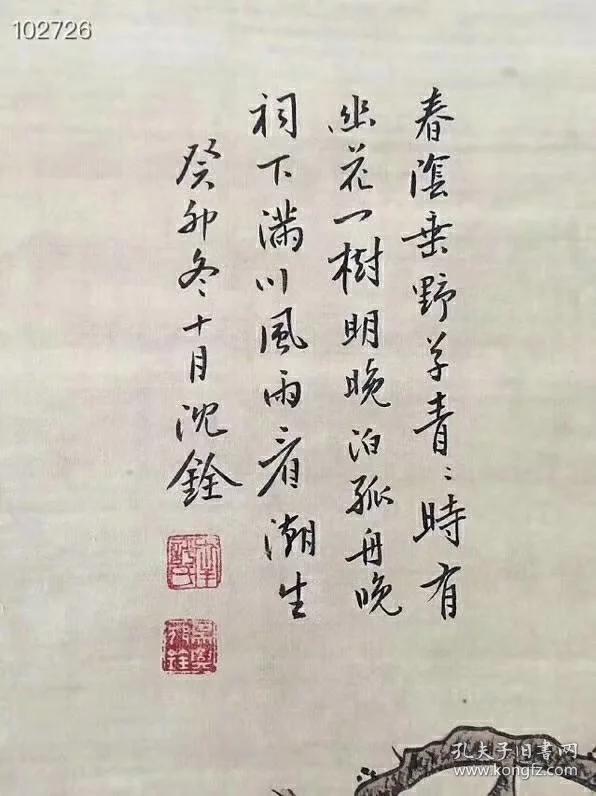 102726
春陰垂野草青〻時有
幽花一樹明晚泊孤舟晚
祠下滿川風雨看潮生
癸卯冬十月沈銓
孔夫子旧书网
www.kongfz.com